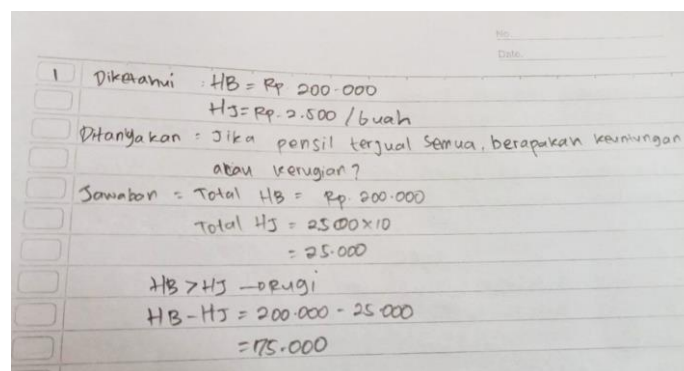 No.
Date.
1 Diketahui : HB = Rp 200.000
HJ = Rp. 2.500 / buah
Ditanyakan = Jika pensil terjual semua, berapakah keuntungan
atau kerugian?
Jawaban = Total HB = Rp. 200.000
Total HJ = 2500 x 10
= 25.000
HB > HJ → Rugi
HB - HJ = 200.000 - 25.000
= 175.000